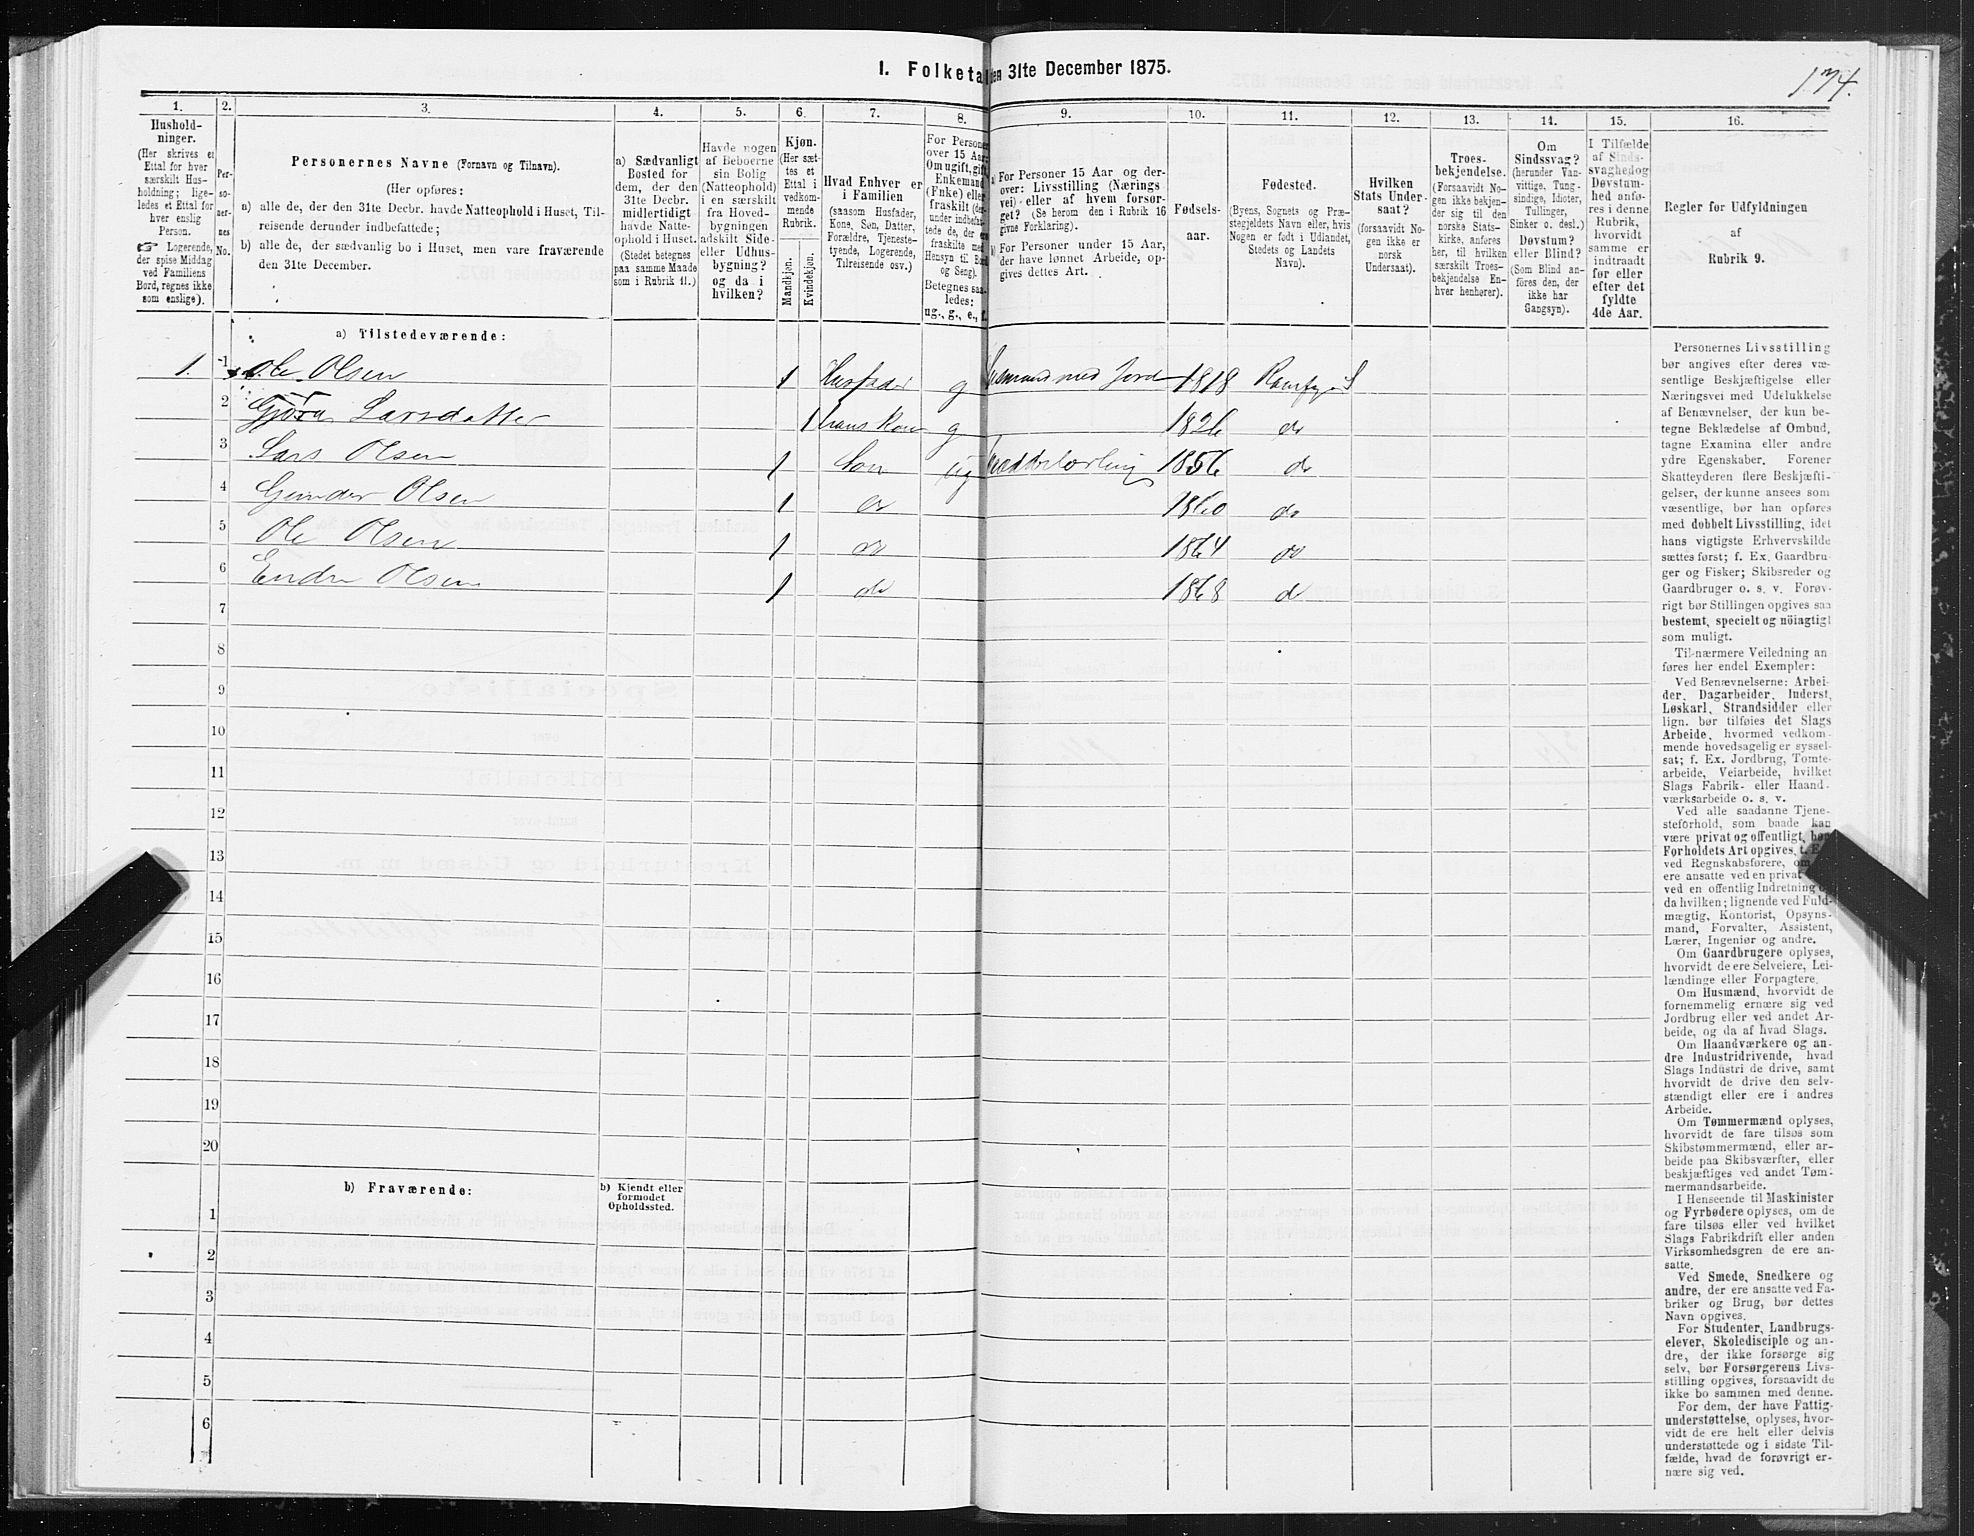 1. Folketa den 31te December 1875.
174.
1.
Hushold-
ninger.
(Her skrives et
Ettal for hver
særskilt Hus-
holdning; lige-
ledes et Ettal for
hver enslig
Person.
☞ Logerende,
der spise Middag
ved Familiens
Bord, regnes ikke
som enslige).
2.
Per-
so-
ner-
nes
No.
3.
Personernes Navne (Fornavn og Tilnavn).
(Her opføres:
a) alle de, der den 31te Decbr. havde Natteophold i Huset, Til-
reisende derunder indbefattede;
b) alle de, der sædvanlig bo i Huset, men vare fraværende
den 31te December.
4.
a) Sædvanligt
Bosted for
dem, der den
31te Decbr.
midlertidigt
havde Natte-
ophold i Huset.
(Stedet betegnes
paa samme Maade
som i Rubrik 11.)
5.
Havde nogen
af Beboerne
sin Bolig
(Natteophold)
i en særskilt
fra Hoved-
bygningen
adskilt Side-
eller Udhus-
bygning?
og da i
hvilken?
6.
Kjøn.
(Her sæt-
tes et
Ettal i
vedkom-
mende
Rubrik.
Mandkjøn.
Kvindekjøn.
7.
Hvad Enhver er
i Familien
(saasom Husfader,
Kone, Søn, Datter,
Forældre, Tjeneste-
tyende, Logerende,
Tilreisende osv.)
8.
For Personer
over 15 Aar:
Om ugift, gift,
Enkemand
(Enke) eller
fraskilt (der-
under indbefat-
tede de, der ere
fraskilte med
Hensyn til Bord
og Seng).
Betegnes saa-
ledes:
ug., g., e., f.
9.
a) For Personer 15 Aar og der-
over: Livsstilling (Nærings
vei) eller af hvem forsør-
get? (Se herom den i Rubrik 16
givne Forklaring).
b) For Personer under 15 Aar,
der have lønnet Arbeide, op-
gives dettes Art.
10.
Fødsels-
aar.
11.
Fødested.
(Byens, Sognets og Præ-
stegjeldets Navn eller, hvis
Nogen er født i Udlandet,
Stedets og Landets
Navn).
12.
Hvilken
Stats Under-
saat?
(forsaavidt No-
gen ikke er
norsk
Undersaat).
13.
Troes-
bekjendelse.
(Forsaavidt No-
gen ikke bekjen-
der sig til den
norske Stats-
kirke, anføres
her, til hvilken
særskilt Troes-
bekjendelse En-
hver henhører).
14.
Om
Sindssvag?
(herunder Van-
vittige, Tung-
sindige, Idioter,
Tullinger,
Sinker o. desl.)
Døvstum?
eller Blind?
(Som Blind an-
føres den, der
ikke har
Gangsyn).
15.
I Tilfælde
af Sinds-
svaghed og
Døvstum-
hed anfø-
res i denne
Rubrik,
hvorvidt
samme er
indtraadt
før eller
efter det
fyldte
4de Aar.
16.
Regler for Udfyldningen
af
Rubrik 9.
a) Tilstedeværende:
1. 1 Ole Olsen 1 Husfader g Husmand med Jord 1818
2 Larsdatter 1 hans Kone g 1826 do
3 Lars Olsen 1 Søn ug 1856 do
4 Gunder Olsen 1 do 1860 do
5 Ole Olsen 1 do 1864 do
6 Endre Olsen 1 do 1868 do
7
8
9
10
11
12
13
14
15
16
17
18
19
20
b) Fraværende:
b) Kjendt eller
formodet
Opholdssted.
1
2
3
4
5
6
Personernes Livsstilling
bør angives efter deres væ-
sentlige Beskjæftigelse eller
Næringsvei med Udelukkelse
af Benævnelser, der kun be-
tegne Beklædelse af Ombud,
tagne Examina eller andre
ydre Egenskaber. Forener
Skatteyderen flere Beskjæfti-
gelser, der kunne ansees som
væsentlige, bør han opføres
med dobbelt Livsstilling, idet
hans vigtigste Erhvervskilde
sættes først; f. Ex. Gaardbru-
ger og Fisker; Skibsreder og
Gaardbruger o. s. v. Forøv-
rigt bør Stillingen opgives saa
bestemt, specielt og nöiagtigt
som muligt.
Til nærmere Veiledning an
føres her endel Exempler:
Ved Benævnelserne: Arbei-
der, Dagarbeider, Inderst,
Løskarl, Strandsidder eller
lign. bør tilføies det Slags
Arbeide, hvormed vedkom-
mende hovedsagelig er syssel-
sat; f. Ex. Jordbrug, Tomte-
arbeide, Veiarbeide, hvilket
Slags Fabrik- eller Haand-
værksarbeide o. s. v.
Ved alle saadanne Tjene-
steforhold, som baade kan
være privat og offentligt, bør
Forholdets Art opgives, t. E
ved Regnskabsførere, om
ere ansatte ved en privat
ved en offentlig Indretning o
da hvilken; lignende ved Fuld-
mægtig, Kontorist, Opsyns-
mand, Forvalter, Assistent,
Lærer, Ingeniør og andre.
Om Gaardbrugere oplyses,
hvorvidt de ere Selveiere, Lei-
lændinge eller Forpagtere.
Om Husmænd, hvorvidt de
fornemmelig ernære sig ved
Jordbrug eller ved andet Ar-
beide, og da af hvad Slags.
Om Haandværkere og an-
dre Industridrivende, hvad
Slags Industri de drive, samt
hvorvidt de drive den selv-
stændigt eller ere i andres
Arbeide.
Om Tømmermænd oplyses,
hvorvidt de fare tilsøs som
Skibstømmermænd, eller ar-
beide paa Skibsværfter, eller
beskjæftiges ved andet Tøm-
mermandsarbeide.
I Henseende til Maskinister
og Fyrbødere oplyses, om de
fare tilsøs eller ved hvilket
Slags Fabrikdrift eller anden
Virksomhedsgren de ere an-
satte.
Ved Smede, Snedkere og
andre, der ere ansatte ved Fa-
briker og Brug, bør dettes
Navn opgives.
For Studenter, Landbrugs-
elever, Skoledisciple og an-
dre, der ikke forsørge sig
selv, bør Forsørgerens Livs-
stilling opgives, forsaavidt de
ikke bo sammen med denne.
For dem, der have Fattig-
understøttelse, oplyses, hvor-
vidt de ere helt eller delvis
understøttede og i sidste Til-
fælde, hvad de forøvrigt er-
nære sig ved.